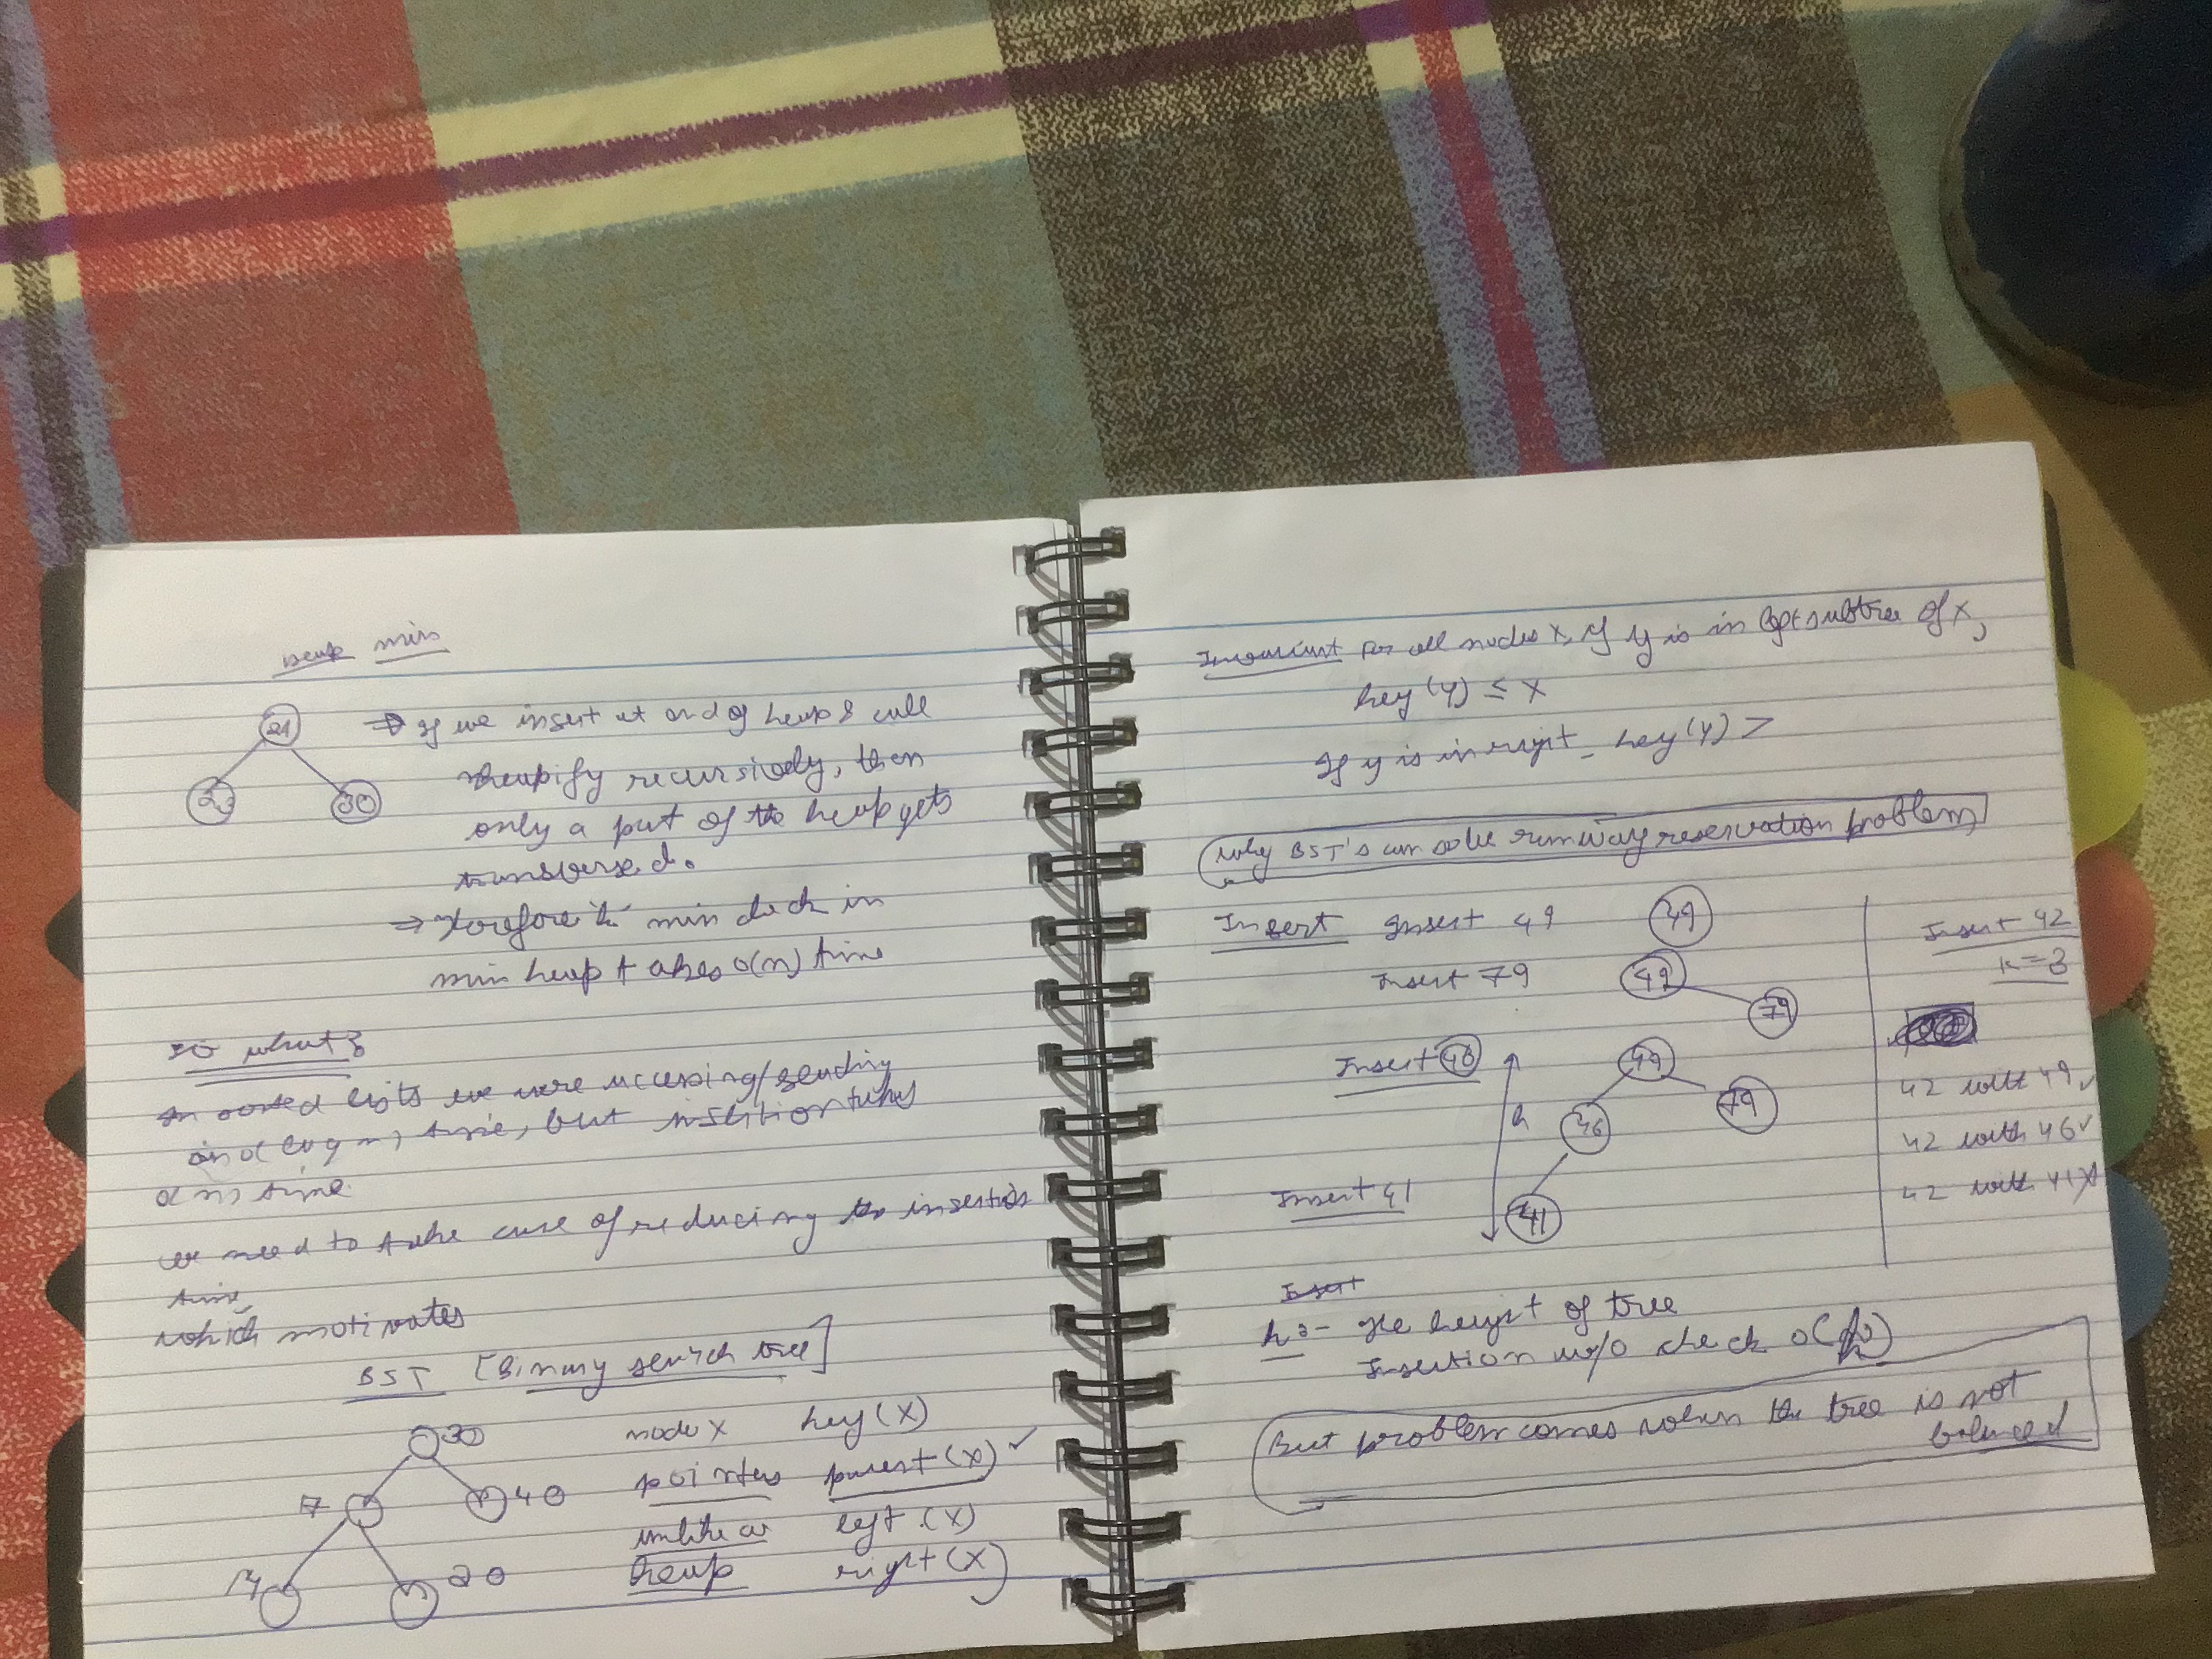 heap min
21
23 30
⇒ If we insert at end of heap & call
heapify recursively, then
only a part of the heap gets
transversed.
⇒ Therefore the min check in
min heap takes O(n) time
So what?
In sorted lists we were accessing/
in O(log n) time, but insertion takes
O(n) time.
we need to take care of reducing the insertion
time,
which motivates
BST [Binary search tree]
30
7 40
14 20
node x key(x)
pointers parent(x) ✓
unlike a left(x)
heap right(x)
Invariant for all nodes x, if y is in left subtree of x,
key(y) ≤ x
If y is in right key(y) >
Why BST's can solve runway reservation problem
Insert Insert 49 49
Insert 79 49
79
Insert 46 49
46 79
h
Insert 41 41
Insert 42
k=3
42 with 49 ✓
42 with 46 ✓
42 with 41 X
Insert
h :- the height of tree
Insertion w/o check O(h)
But problem comes when the tree is not
balanced